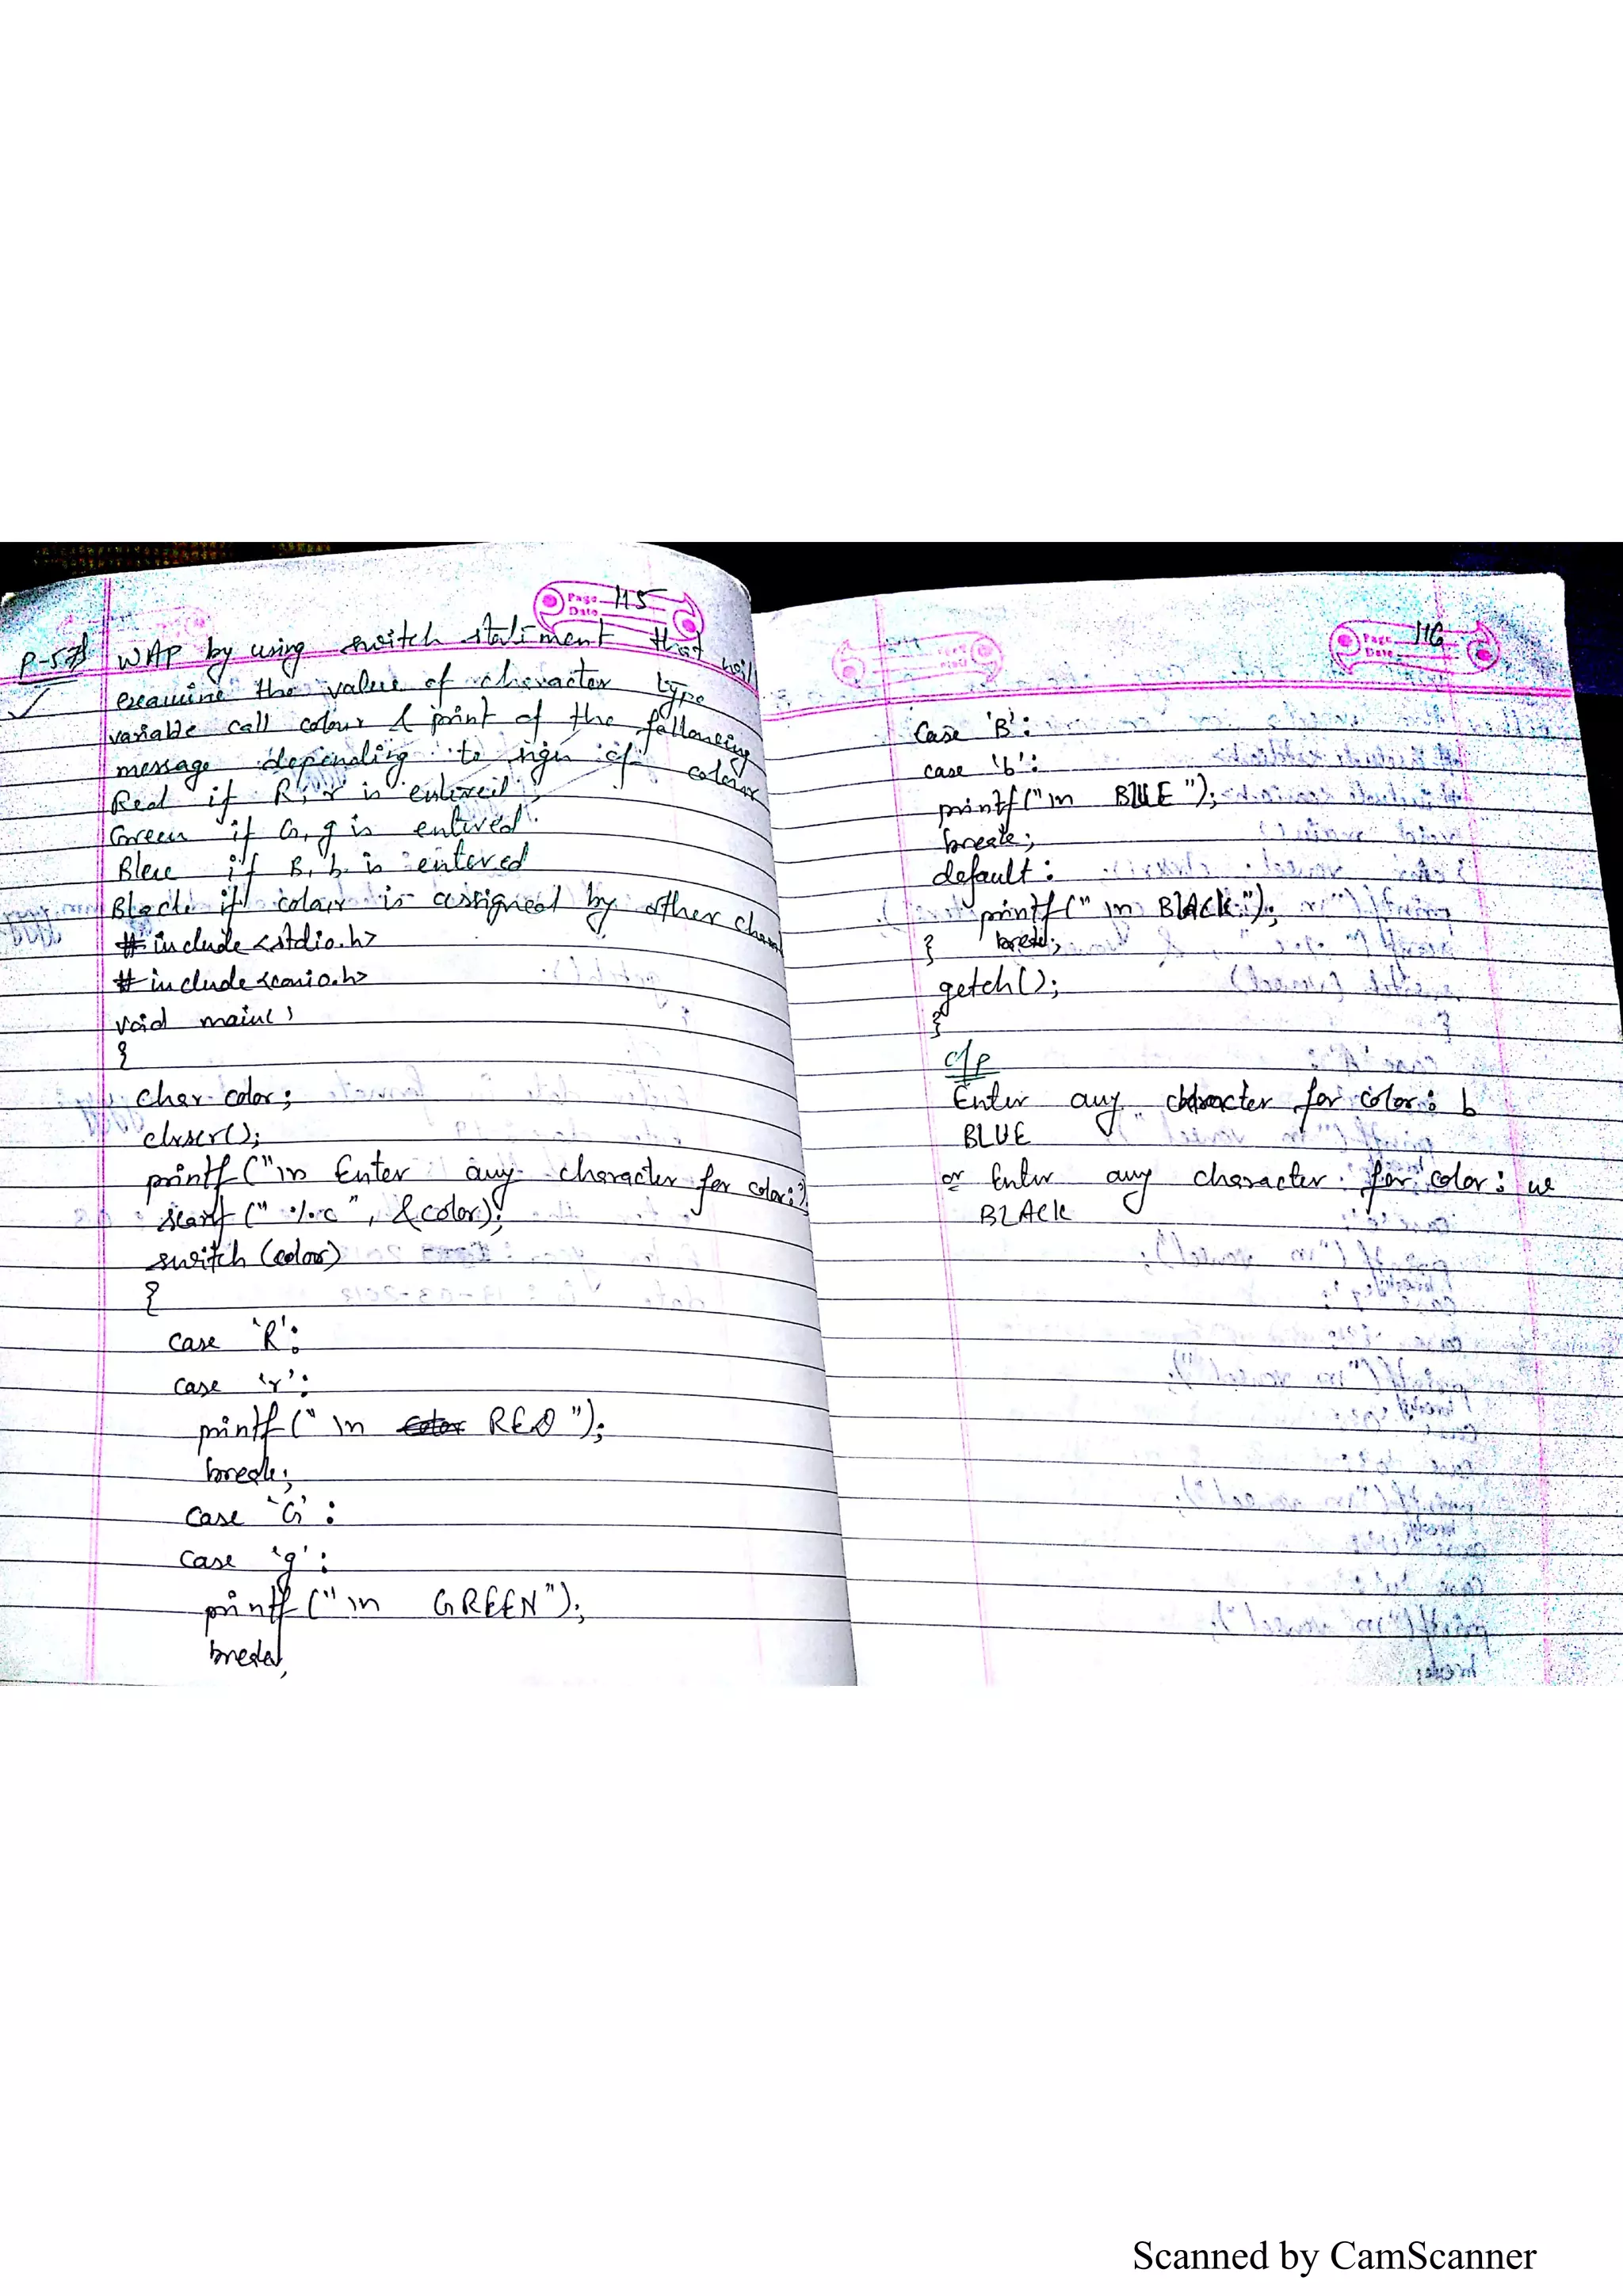 Page 115
Date
P-57 WAP by using switch statement that will
examine the value of character type
variable call colour & print of the following
message depending to sign of colour
Red if R, r is entered
Green if G, g is entered.
Blue if B, b is entered
Black if colour is assigned by other
#include<stdio.h>
#include<conio.h>
void main()
{
char color;
clrscr();
printf("\n Enter any character for color:");
scanf("%c", &color);
switch (color)
{
case 'R':
case 'r':
printf("\n RED");
break;
case 'G':
case 'g':
printf("\n GREEN");
break;
Page 116
Date
Case 'B':
case 'b':
printf("\n BLUE");
break;
default:
printf("\n BLACK");
break;
}
getch();
}
o/p
Enter any character for color: b
BLUE
or Enter any character for color: w
BLACK
Scanned by CamScanner